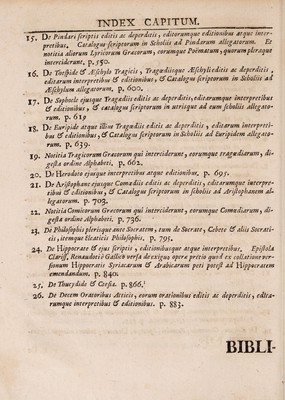 INDEX CAPITUM.
15. De Pindari scriptis editis ac deperditis, editorumque editionibus atque inter-
pretibus, Catalogus scriptorum in Scholiis ad Pindarum allegatorum. Et
notitia aliorum Lyricorum Græcorum, eorumque Poëmatum, quorum pleraque
interciderunt, p. 550.
16. De Thespide & Æschylo Tragicis, Tragœdiisque Æschyli editis ac deperditis,
editarum interpretibus & editionibus, & Catalogus scriptorum in Scholiis ad
Æschylum allegatorum, p. 600.
17. De Sophocle ejusque Tragœdiis editis ac deperditis, editarumque interpretibus
& editionibus, & Catalogus scriptorum in utriusque ad eum scholiis allegato-
rum. p. 619
18. De Euripide atque illius Tragœdiis editis ac deperditis, editarum interpreti-
bus & editionibus, & Catalogus scriptorum in Scholiis ad Euripidem allegato-
rum. p. 639.
19. Notitia Tragicorum Græcorum qui interciderunt, eorumque tragœdiarum, di-
gesta ordine Alphabeti, p. 662.
20. De Herodoto ejusque interpretibus atque editionibus, p. 695.
21. De Aristophane ejusque Comœdiis editis ac deperditis, editarumque interpre-
tibus & editionibus, & Catalogus scriptorum in scholiis ad Aristophanem al-
legatorum. p. 703.
22. Notitia Comicorum Græcorum qui interciderunt, eorumque Comœdiarum, di-
gesta ordine Alphabeti, p. 736.
23. De Philosophis plerisque ante Socratem, tum de Socrate, Cebete & aliis Socrati-
cis, itemque Eleaticis Philosophis, p. 795.
24. De Hippocrate & ejus scriptis, editionibusque atque interpretibus. Epistola
Clariss. Renaudoti è Gallico versa de exigua opera pretio quod ex collatione ver-
sionum Hippocratis Syriacarum & Arabicarum peti potest ad Hippocratem
emendandum. p. 840.
25. De Thucydide & Ctesia. p. 866.
26. De Decem Oratoribus Atticis, eorum orationibus editis ac deperditis, edita-
rumque interpretibus & editionibus. p. 883.
BIBLI-